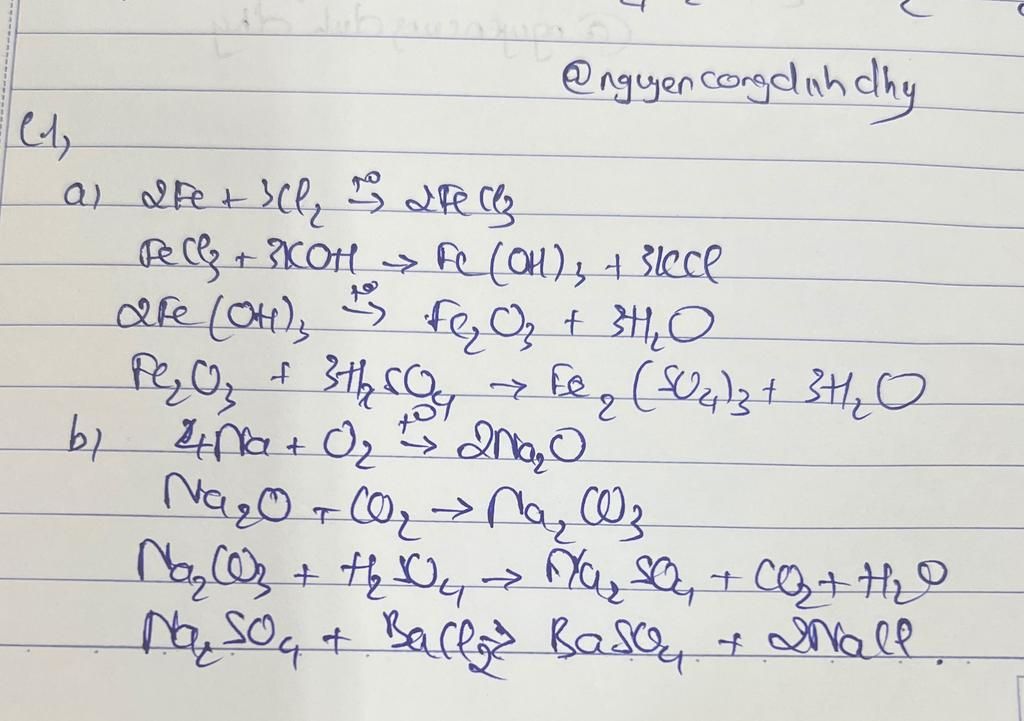 @nguyencongdinhdhy
C1,
a) 2Fe + 3Cl₂ →(t⁰) 2FeCl₃
FeCl₃ + 3KOH → Fe(OH)₃ + 3KCl
2Fe(OH)₃ →(t⁰) Fe₂O₃ + 3H₂O
Fe₂O₃ + 3H₂SO₄ → Fe₂(SO₄)₃ + 3H₂O
b) 4Na + O₂ →(t⁰) 2Na₂O
Na₂O + CO₂ → Na₂CO₃
Na₂CO₃ + H₂SO₄ → Na₂SO₄ + CO₂ + H₂O
Na₂SO₄ + BaCl₂ → BaSO₄ + 2NaCl.